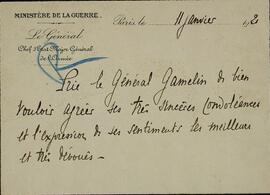 MINISTÈRE DE LA GUERRE.
Paris, le 11 janvier
Le Général
Chef d'Etat-Major Général
de l'Armée
Prie le Général Gamelin de bien
vouloir agréer ses très sincères condoléances
et l'expression de ses sentiments les meilleurs
et très dévoués -